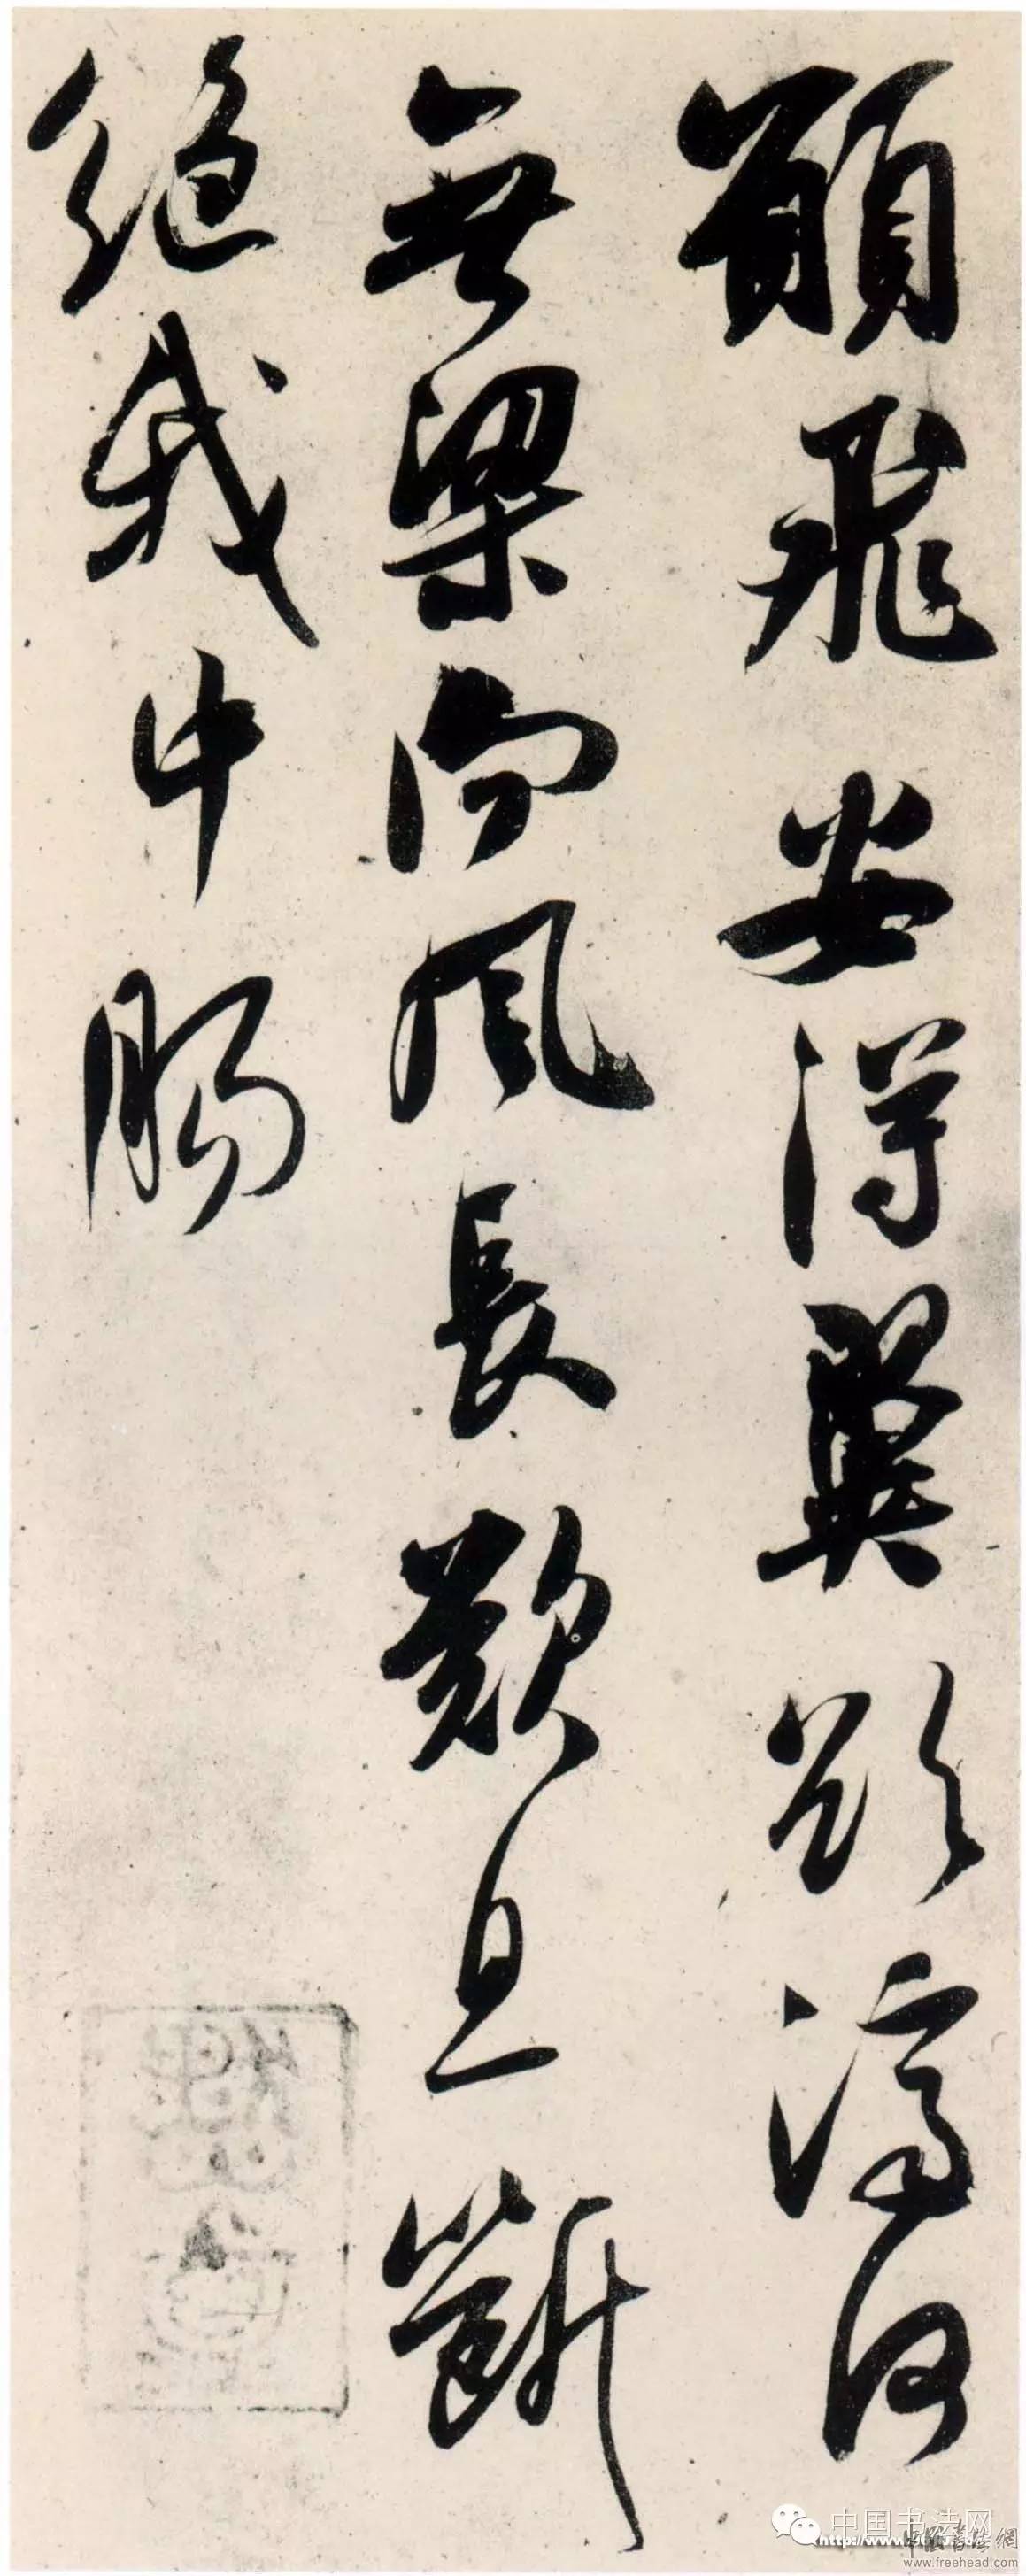 願飛安得翼欲濟河
無梁向風長歎息斷
絕我中腸
中国书法网
http://www.
中國書法網
www.freehead.com